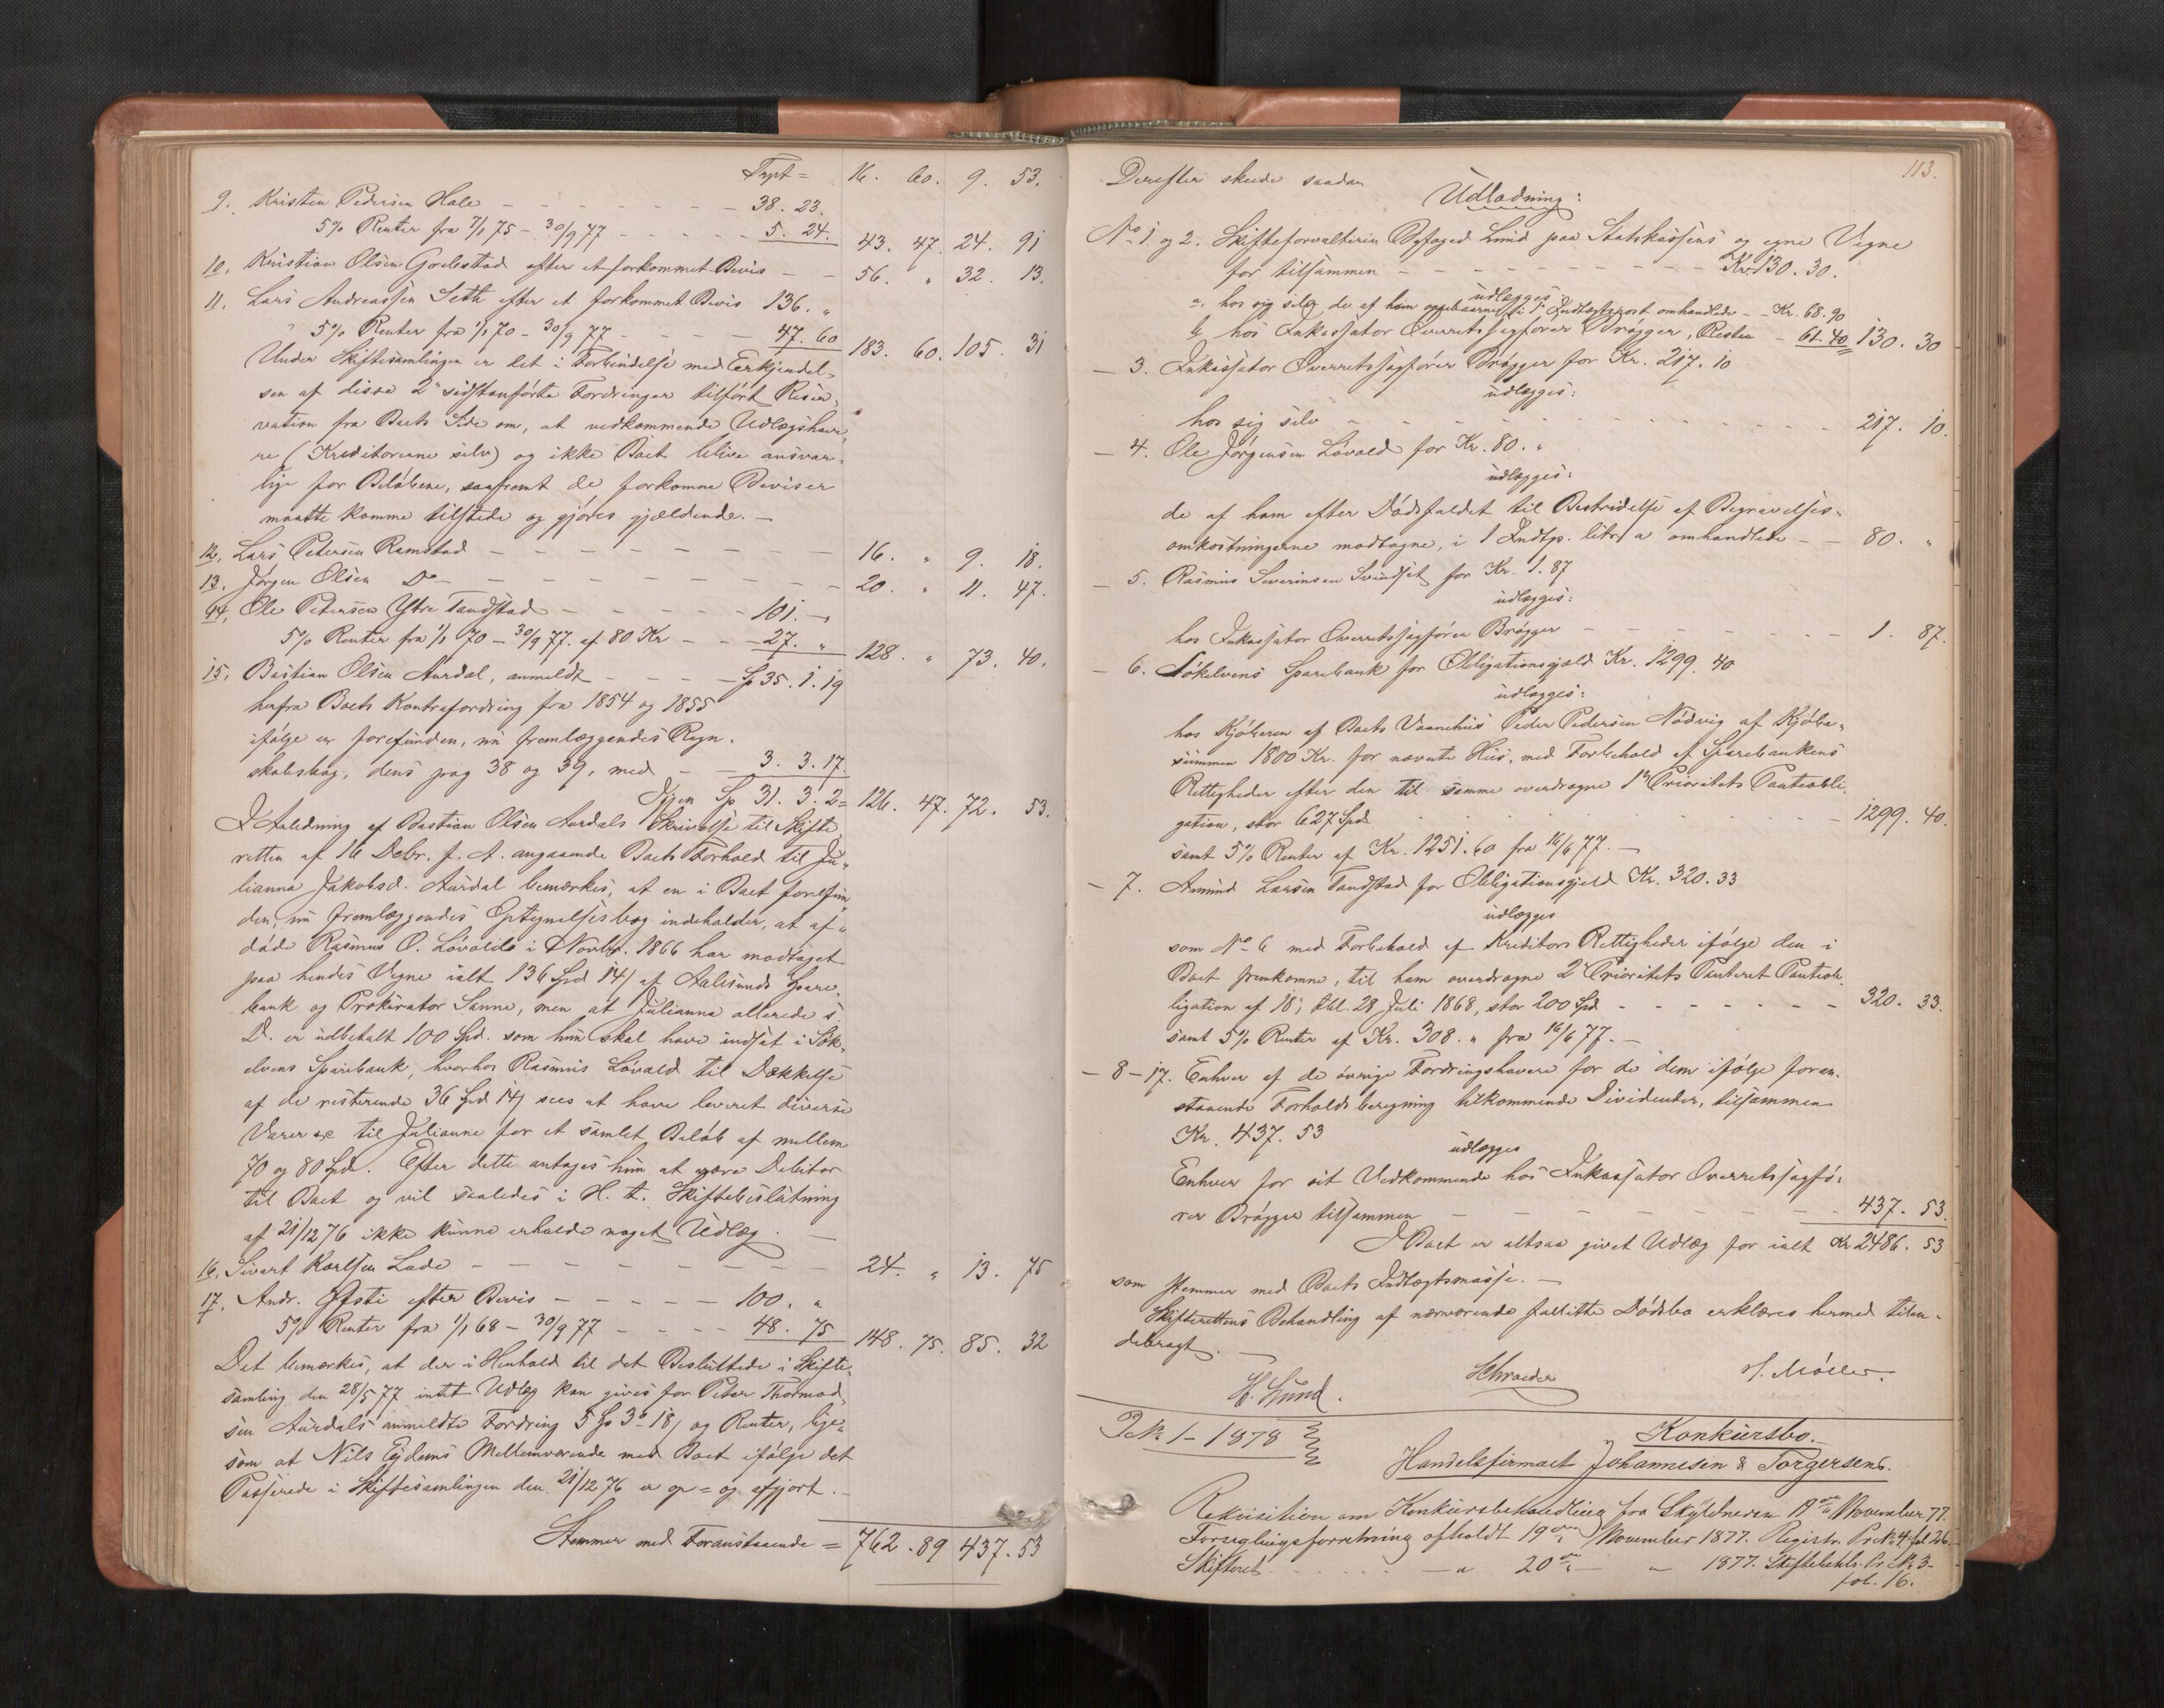 Trpt = 16. 60. 9. 53.
9. Kristen Pedersen Hole – – – 38. 23.
5% Renter fra 7/1 75 – 30/9 77 – – – 5. 24. 43. 47. 24. 91
10. Kristian Olsen Grebstad efter et forkommet Bevis – – 56. " 32. 13.
11. Lars Andreassen Seth efter et forkommet Bevis 136. "
" 5% Renter fra 1/1 70 – 30/9 77 – – – 47. 60 183. 60. 105. 31
Under Skiftesamlingen er det i Forbindelse med Erkjendel-
sen af disse 2de sidstanførte Fordringer tilført Reser-
vation fra Boets Side om, at vedkommende Udlægshave-
re (Kreditorerne selv) og ikke Boet blive ansvar-
lige for Beløbene, saafremt de forkomne Beviser
maatte komme tilstede og gjøres gjældende. –
12. Lars Petersen Ramstad – – – 16. " 9. 18.
13. Jørgen Olsen Do – – – 20. " 11. 47.
14. Ole Petersen Ytre Tandstad – – – 101. "
5% Renter fra 1/1 70 – 30/9 77. af 80 Kr – – 27. " 128. " 73. 40.
15. Bastian Olsen Aurdal, anmeldt – – – Sp 35. 1. 19
herfra Boets Kontrafordring fra 1854 og 1855
ifølge en forefunden, nu fremlæggendes Regn-
skabsbog, dens pag 38 og 39, med – – 3. 3. 17.
Igjen Sp 31. 3. 2 = 126. 47. 72. 53.
I Anledning af Bastian Olsen Aurdals Skrivelse til Skifte-
retten af 16 Debr. f. A. angaaende Boets Forhold til Ju-
lianna Jakobsd. Aurdal bemærkes, at en i Boet forefun-
den, nu fremlæggendes Optegnelsesbog indeholder, at af-
døde Rasmus O. Løvold i Novbr. 1866 har modtaget
paa hendes Vegne ialt 136 Spd 14 / af Aalesunds Spare-
bank og Prokurator Sanne, men at Julianna allerede s.
D. er udbetalt 100 Spd. som hun skal have indsat i Søk-
elvens Sparebank, hvorhos Rasmus Løvold til Dækkelse
af de resterende 36 Spd 14 / sees at have leveret diverse
Varer &c til Julianne for et samlet Beløb af mellem
70 og 80 Spd. Efter dette antages hun at være Debitor
til Boet og vil saaledes i H. t. Skiftebeslutning
af 21/12 76 ikke kunne erholde noget Udlæg. –
16. Sivert Karlsen Lade – – – 24. " 13. 75
17. Andr. Ofsti efter Bevis – – – 100. "
5% Renter fra 1/1 68 – 30/9 77 – – – 48. 75 148. 75. 85. 32
Det bemærkes, at der i Henhold til det Besluttede i Skifte-
samling den 28/5 77 intet Udlæg kan gives for Peter Thormod-
sen Aurdals anmeldte Fordring 5 Sp 3 18 / og Renter, lige-
som at Nils Ejdems Mellemværende med Boet ifølge det
Passerede i Skiftesamlingen den 21/12 76 er op- og afgjort. –
Stemmer med Foranstaaende = 762. 89 437. 53
113.
Derefter skede saadan
Udlodning:
No 1. og 2. Skifteforvalteren Byfoged Lund paa Statskassens og egne Vegne
for tilsammen – – – Kr. 130. 30.
udlægges:
a. hos sig selv de af ham oppebaarne i 1 Indtægtspost omhandlede – – Kr. 68. 90
b hos Inkassator Overretssagfører Brøgger, Resten – 61. 40 130. 30
– 3. Inkassator Overretssagfører Brøgger for Kr. 217. 10
udlægges:
hos sig selv – – – 217. 10.
– 4. Ole Jørgensen Løvold for Kr. 80. "
udlægges:
de af ham efter Dødsfaldet til Bestridelse af Begravelses-
omkostningerne modtagne, i 1 Indtp. litr. a omhandlede – – 80. "
– 5. Rasmus Severinsen for Kr. 1. 87
udlægges:
hos Inkassator Overretssagfører Brøgger – – – 1. 87.
– 6. Søkelvens Sparebank for Obligationsgjæld Kr. 1299. 40
udlægges:
hos Kjøberen af Boets Vaanehus Peder Pedersen Nødvig af Kjøbe-
summen 1800 Kr. for nævnte Hus, med Forbehold af Sparebankens
Rettigheder efter den til samme overdragne 1ste Prioritets Panteobli-
gation, stor 627 Spd – – – 1299. 40.
samt 5% Renter af Kr. 1251. 60 fra 16/6 77. –
– 7. Amund Larsen Tandstad for Obligationsgjeld Kr. 320. 33
udlægges
som No 6 med Forbehold af Kreditors Rettigheder ifølge den i
Boet fremkomne, til ham overdragne 2 Prioritets Panteret Panteob-
ligation af 18, tbl. 28 Juli 1868, stor 200 Spd – – – 320. 33.
samt 5% Renter af Kr. 308. " fra 16/6 77. –
– 8–17. Enhver af de øvrige Fordringshavere for de dem ifølge foran-
staaende Forholdsberegning tilkommende Dividender, tilsammen
Kr. 437. 53
udlægges
Enhver for sit Vedkommende hos Inkassator Overretssagfø-
rer Brøgger tilsammen – – – 437. 53.
I Boet er altsaa givet Udlæg for ialt Kr 2486. 53
som stemmer med Boets Indtægtsmasse. –
Skifterettens Behandling af nærværende fallitte Dødsbo erklæres hermed tilen-
debragt. –
H. Lund. Schrøeder S. Møller.
1– 1878
Konkursbo.
Handelsfirmaet Johannesen & Torgersens.
Rekvisition om Konkursbehandling fra Skyldneren 19de November 77.
Forseglingsforretning afholdt 19de November 1877. Registr. Pr. No 4 fol 26.
Skifteret – – – " 20de – " 1877. Skiftebehdl. Pr. No 3–
fol. 16.